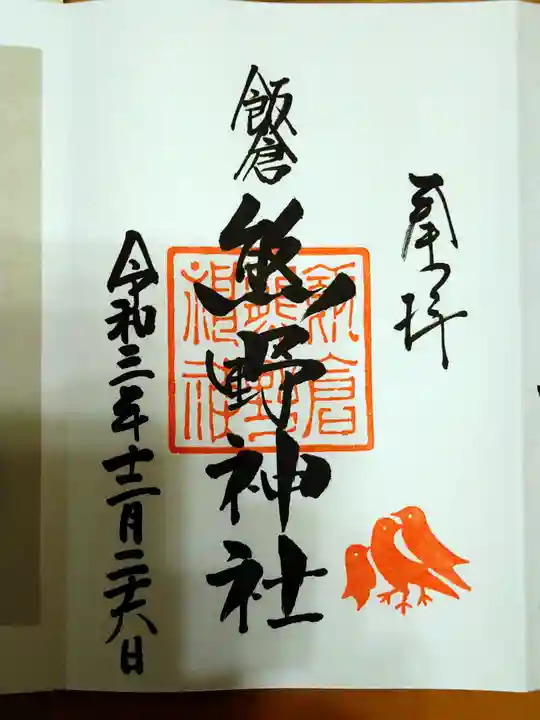 奉拝
飯倉
熊野神社
飯倉熊野神社
令和三年十二月二十六日